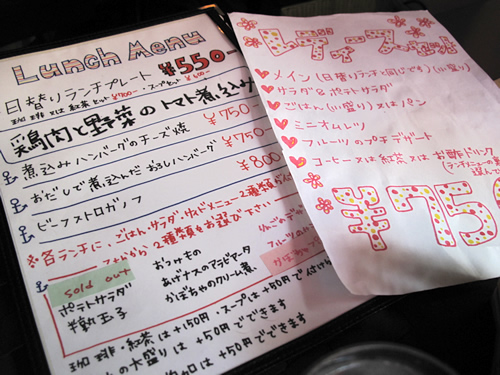 Lunch Menu
日替りランチプレート ¥550-
珈琲又は紅茶セット ¥700- スープセット
鶏肉と野菜のトマト煮込み
煮込みハンバーグのチーズ焼 ¥750
おだしで煮込んだおろしハンバーグ ¥750
ビーフストロガノフ ¥800
※各ランチに、ごはん、サラダ、サイドメニュー2種類
2種類をお選び下さい
sold out
ポテトサラダ
半熟玉子
おつまもの
あげナスのアラビアータ
かぼちゃのクリーム煮
珈琲・紅茶は+150円・スープは+50円で付け
の大盛りは+50円でできます
は+50円でできます
レディースプレート
メイン(日替りランチと同じです)(小盛り)
サラダ&ポテトサラダ
ごはん(小盛り)又はパン
ミニオムレツ
フルーツのプチデザート
コーヒー又は紅茶又はお酢ドリンク
¥75